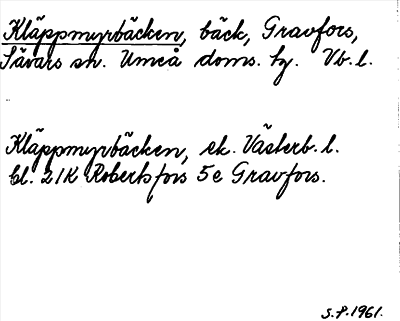 Kläppmyrbäcken, bäck, Gravfors,
Sävars sn. Umeå doms. hg. Vb. l.
Kläppmyrbäcken, ek. Västerb. l.
bl. 21K Robertsfors 5e Gravfors.
S.P. 1961.